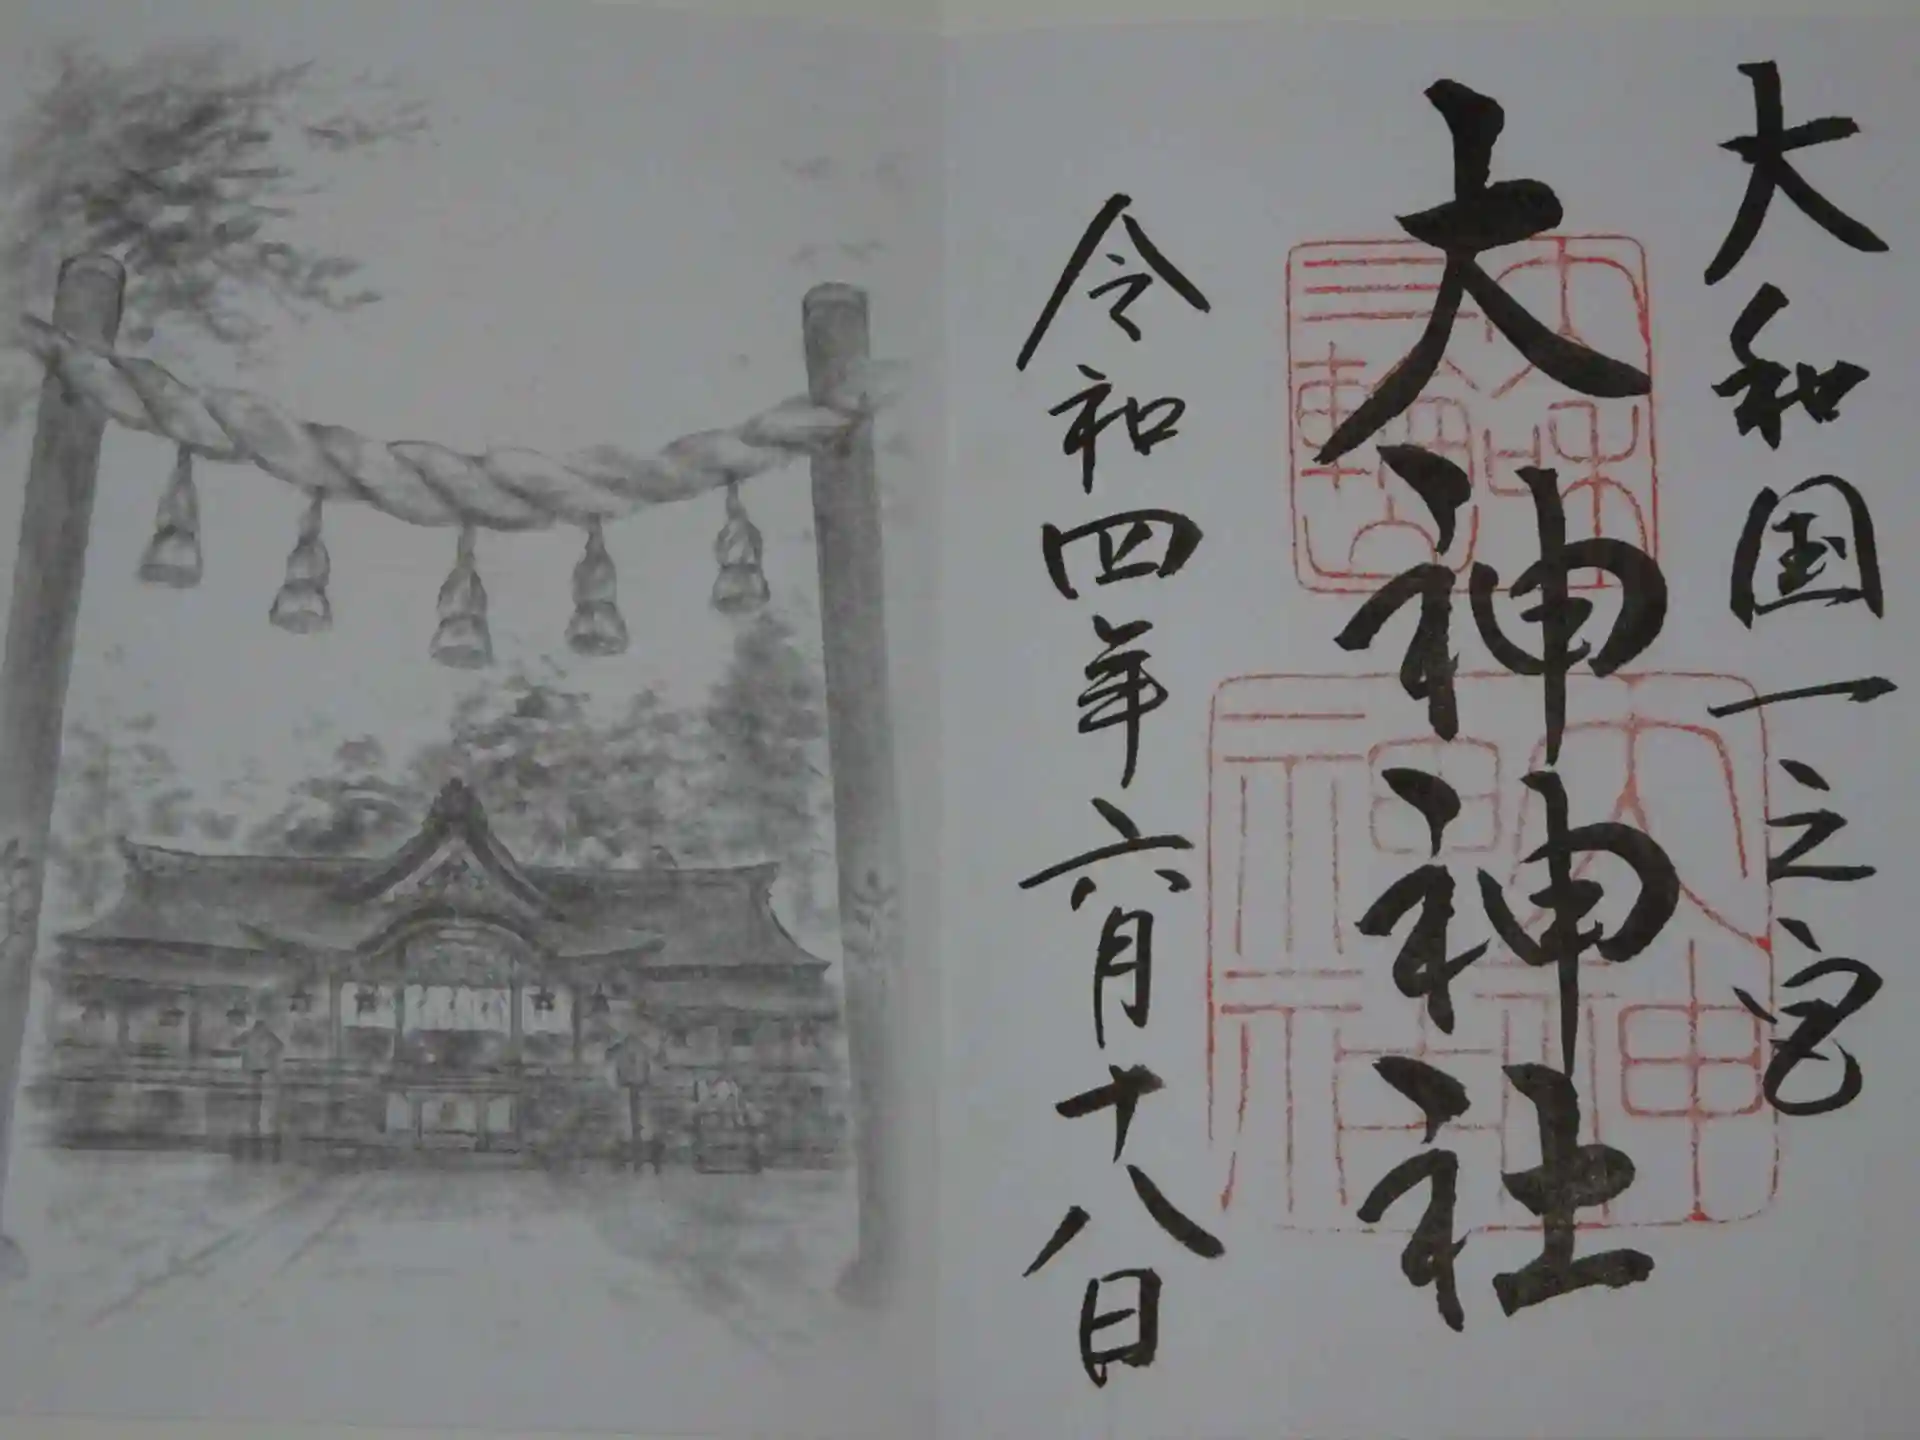 大和国一之宮
大神神社
令和四年六月十八日
大神
神社